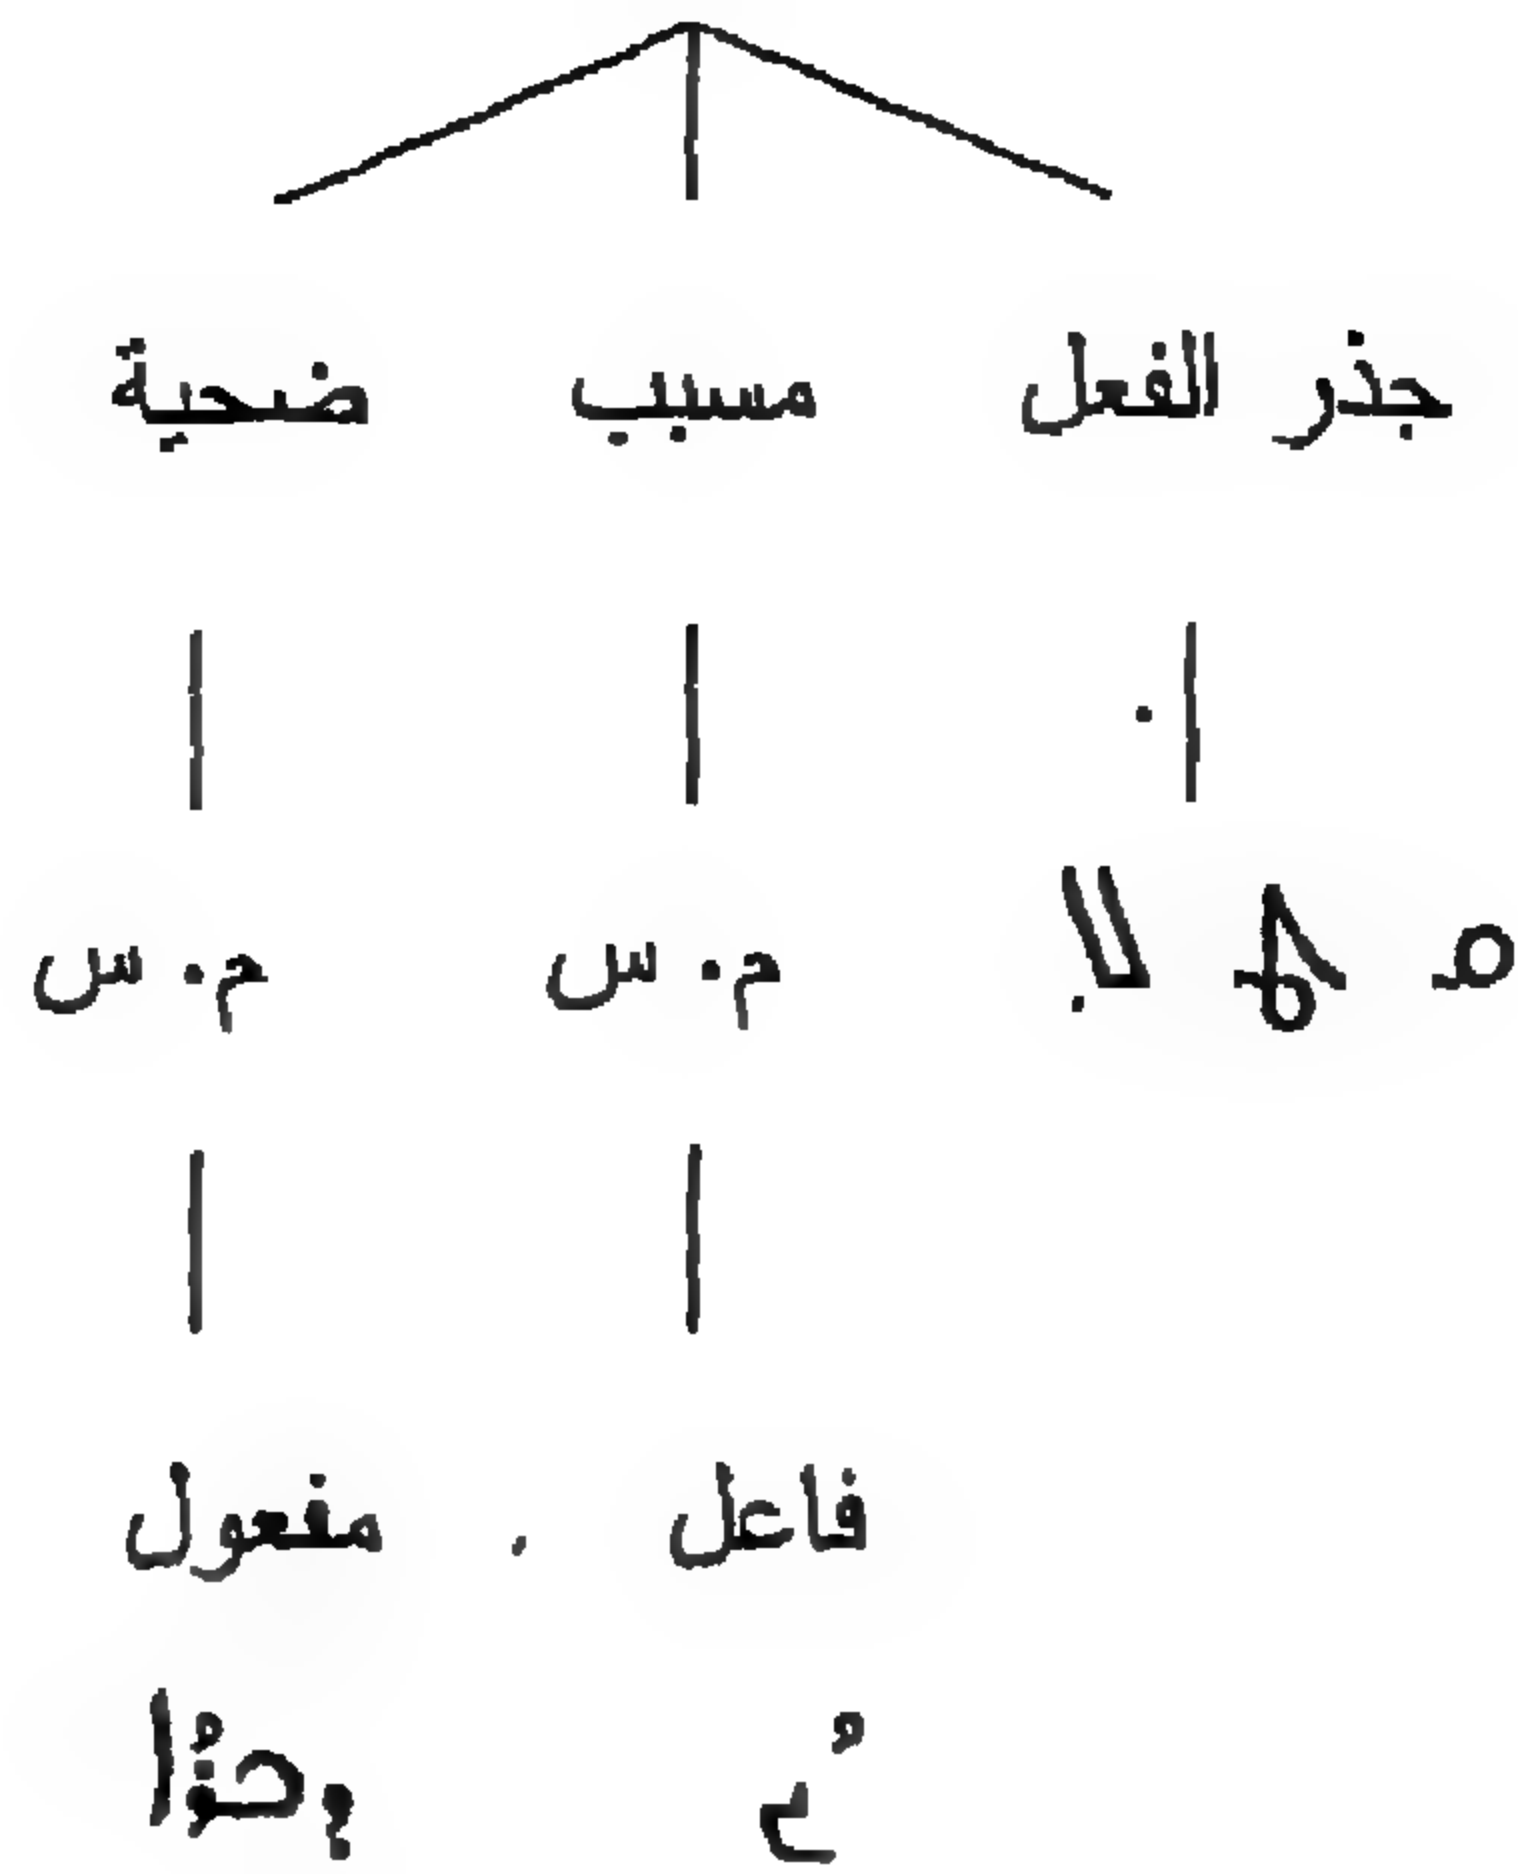 جذر الفعل مسبب ضحية
ܩ ܛ ܠ م. س م. س
فاعل مفعول